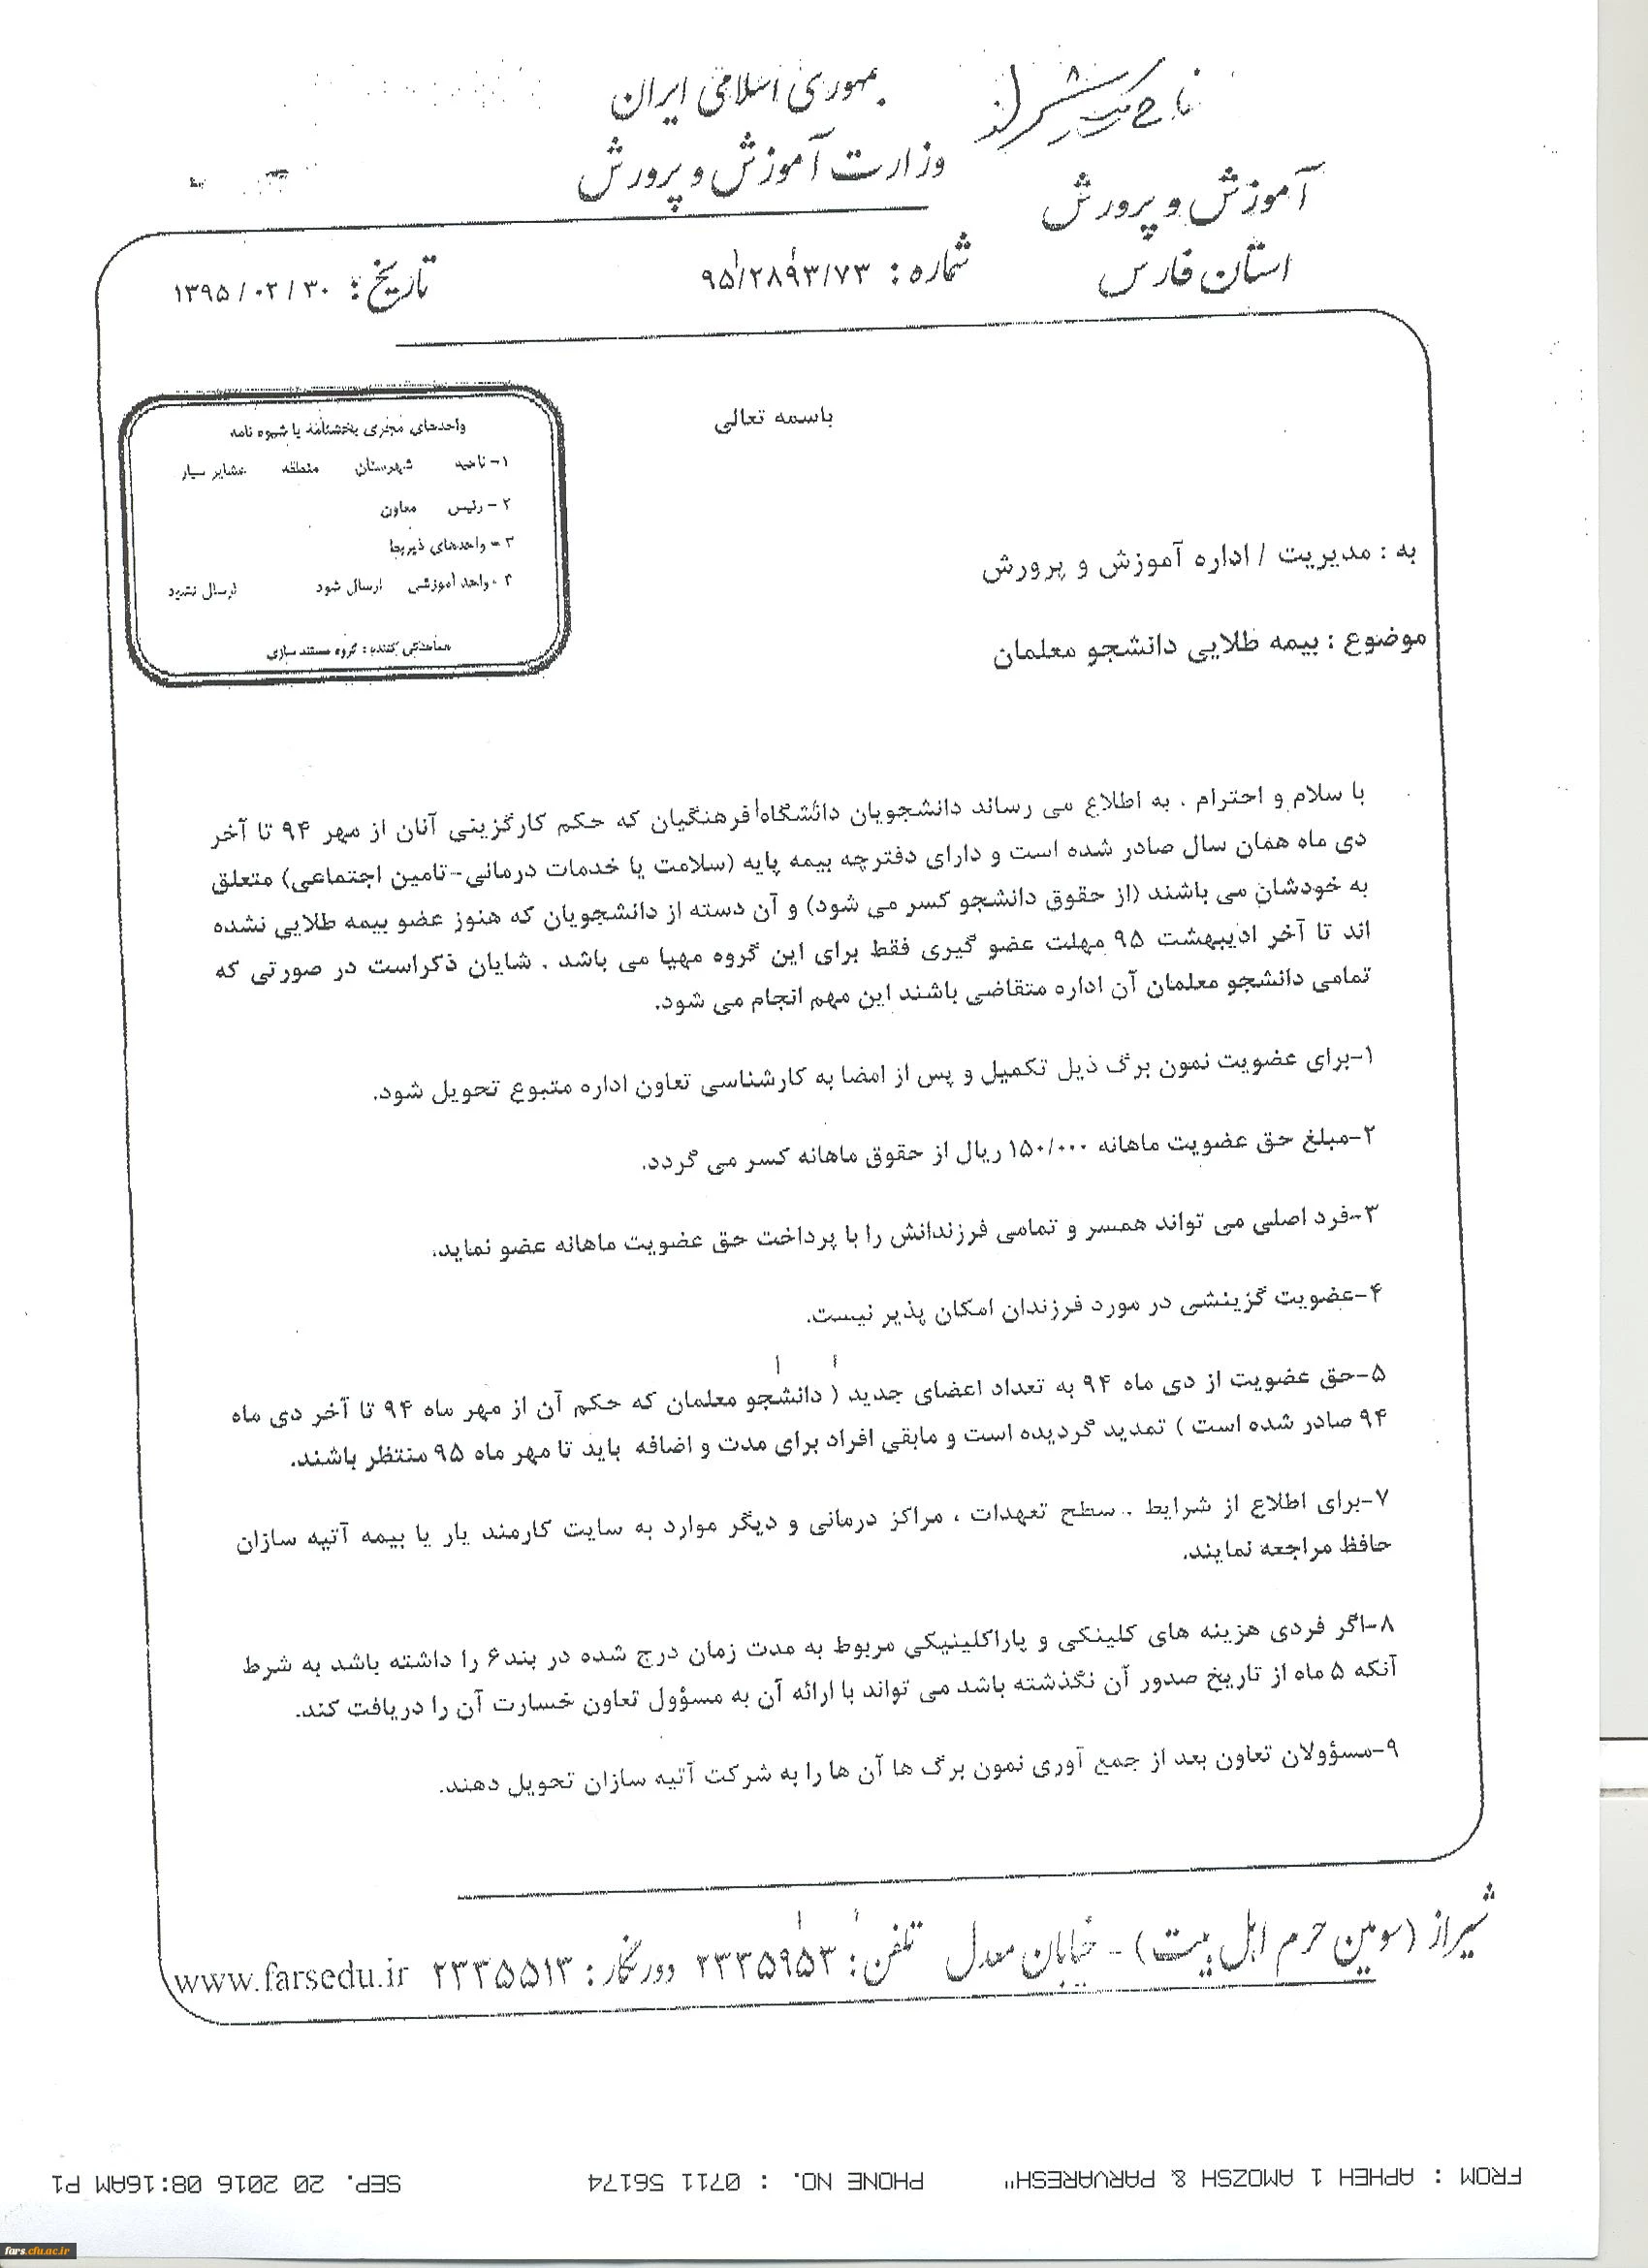 جمهوری اسلامی ایران
وزارت آموزش و پرورش
آموزش و پرورش
استان فارس
شماره : ۹۵/۲۸۹۳/۷۳
تاریخ : ۱۳۹۵/۰۲/۳۰
باسمه تعالی
واحدهای مجری بخشنامه یا شیوه نامه
۱- ناحیه شهرستان منطقه عشایر سیار
۲- رئیس معاون
۳- واحدهای ذیربط
۴- واحد آموزشی ارسال شود ارسال نشود
هماهنگی کننده : گروه مستند سازی
به : مدیریت / اداره آموزش و پرورش
موضوع : بیمه طلایی دانشجو معلمان
با سلام و احترام . به اطلاع می رساند دانشجویان دانشگاه فرهنگیان که حکم کارگزینی آنان از مهر ۹۴ تا آخر
دی ماه همان سال صادر شده است و دارای دفترچه بیمه پایه (سلامت یا خدمات درمانی-تامین اجتماعی) متعلق
به خودشان می باشند (از حقوق دانشجو کسر می شود) و آن دسته از دانشجویان که هنوز عضو بیمه طلایی نشده
اند تا آخر ادیبهشت ۹۵ مهلت عضو گیری فقط برای این گروه مهیا می باشد . شایان ذکراست در صورتی که
تمامی دانشجو معلمان آن اداره متقاضی باشند این مهم انجام می شود.
۱-برای عضویت نمون برگ ذیل تکمیل و پس از امضا به کارشناسی تعاون اداره متبوع تحویل شود.
۲-مبلغ حق عضویت ماهانه ۱۵۰/۰۰۰ ریال از حقوق ماهانه کسر می گردد.
۳-فرد اصلی می تواند همسر و تمامی فرزندانش را با پرداخت حق عضویت ماهانه عضو نماید.
۴-عضویت گزینشی در مورد فرزندان امکان پذیر نیست.
۵-حق عضویت از دی ماه ۹۴ به تعداد اعضای جدید ( دانشجو معلمان که حکم آن از مهر ماه ۹۴ تا آخر دی ماه
۹۴ صادر شده است ) تمدید گردیده است و مابقی افراد برای مدت و اضافه باید تا مهر ماه ۹۵ منتظر باشند.
۷-برای اطلاع از شرایط . سطح تعهدات ، مراکز درمانی و دیگر موارد به سایت کارمند یار یا بیمه آتیه سازان
حافظ مراجعه نمایند.
۸-اگر فردی هزینه های کلینکی و پاراکلینیکی مربوط به مدت زمان درج شده در بند۶ را داشته باشد به شرط
آنکه ۵ ماه از تاریخ صدور آن نگذشته باشد می تواند با ارائه آن به مسؤول تعاون خسارت آن را دریافت کند.
۹-مسؤولان تعاون بعد از جمع آوری نمون برگ ها آن ها را به شرکت آتیه سازان تحویل دهند.
شیراز (سومین حرم اهل بیت) - خیابان معدل تلفن : ۲۳۳۵۹۵۳ دورنگار : ۲۳۳۵۵۱۳ www.farsedu.ir
FROM : APHEH 1 AMOZSH & PARVARESH" PHONE NO. : 0711 56174 SEP. 20 2016 08:16AM P1
fars.cfu.ac.ir